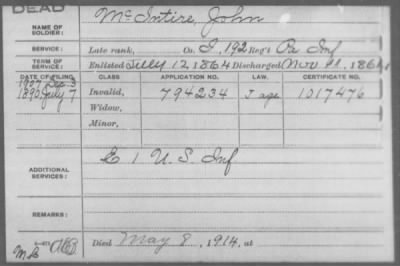 DEAD
NAME OF SOLDIER: McIntire, John
SERVICE: Late rank, Co. I, 192 Reg't Pa Inf
TERM OF SERVICE: Enlisted July 12, 1864 Discharged Nov 11, 1864
DATE OF FILING. CLASS. APPLICATION NO. LAW. CERTIFICATE NO.
1907 Dec 3
1890 July 7 Invalid, 794234 J age 1017476
Widow,
Minor,
ADDITIONAL SERVICES: E 1 U.S. Inf
REMARKS:
Died May 8, 1914, at